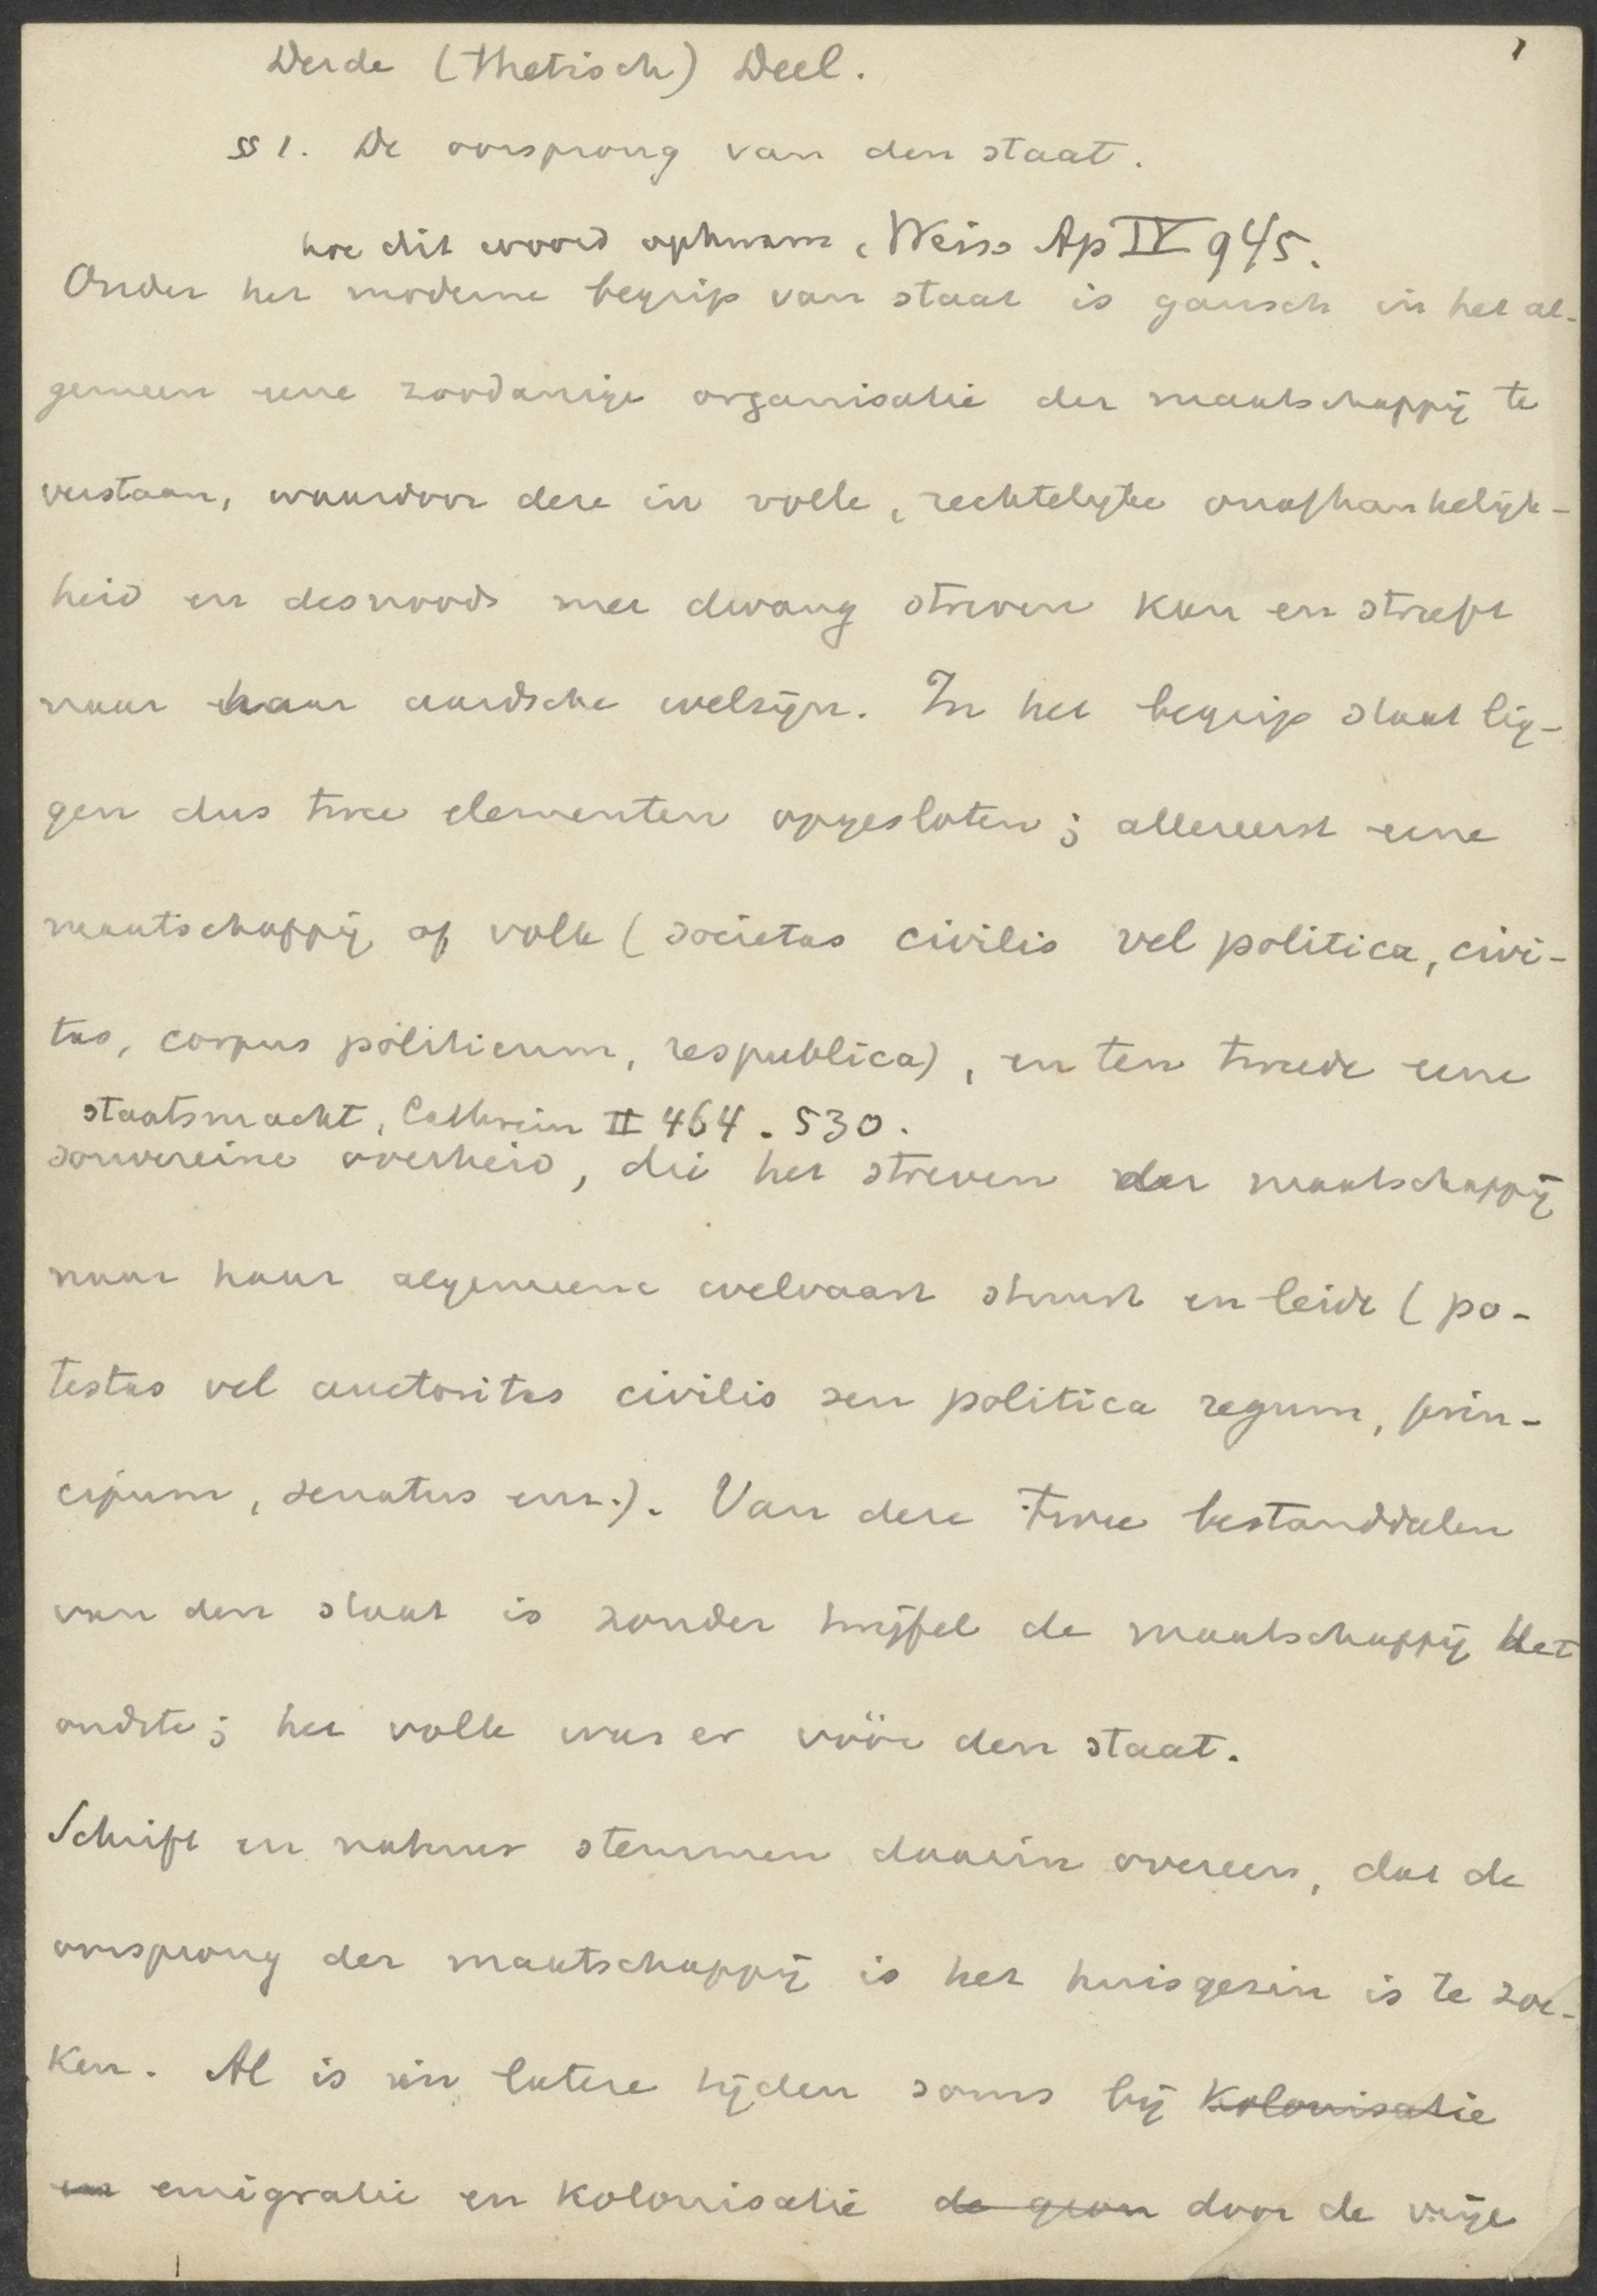 1
Derde (thetisch) Deel.
§ 1. De oorsprong van den staat.
hoe dit woord opkwam, Weiss Ap IV 945.
Onder het moderne begrip van staat is gansch in het al-
gemeen eene zoodanige organisatie der maatschappij te
verstaan, waardoor deze in volle, rechtelyke onafhankelijk-
heid en desnoods met dwang streven kan en streeft
naar haar aardsche welzijn. In het begrip staat lig-
gen dus twee elementen opgesloten; allereerst eene
maatschappij of volk (societas civilis vel politica, civi-
tas, corpus politicum, respublica), en ten tweede eene
staatsmacht, Cathrein II 464. 530.
souvereine overheid, die het streven der maatschappij
naar haar algemeene welvaart stuurt en leidt (po-
testas vel auctoritas civilis seu politica regum, prin-
cipum, senatus enz.). Van deze twee bestanddeelen
van den staat is zonder twijfel de maatschappij het
oudste; het volk was er vóór den staat.
Schrift en natuur stemmen daarin overeen, dat de
oorsprong der maatschappij is het huisgezin is te zoe-
ken. Al is in latere tijden soms bij kolonisatie
en emigratie en kolonisatie de gron door de vrije